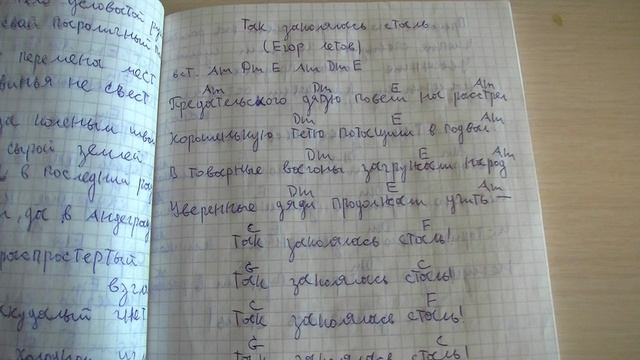 ело условостой
свой посрамный
перемена мест
винья не свест
за колсным
сырой землёй
в последний раз
да в Андеграу
распростертый
взгл
скудалый цвет
Так закалялась сталь
(Егор Летов)
вст. Am Dm E Am Dm E
Am Dm E Am
Предательского дядю повели на расстрел
Dm E Am
Хорошенькую тётю потащили в подвал
Dm E Am
В товарные вагоны загружали народ
Dm E Am
Уверенные дяди продолжали учить —
C F
Так закалялась сталь!
G C
Так закалялась сталь!
C F
Так закалялась сталь!
G C
Так закалялась сталь!